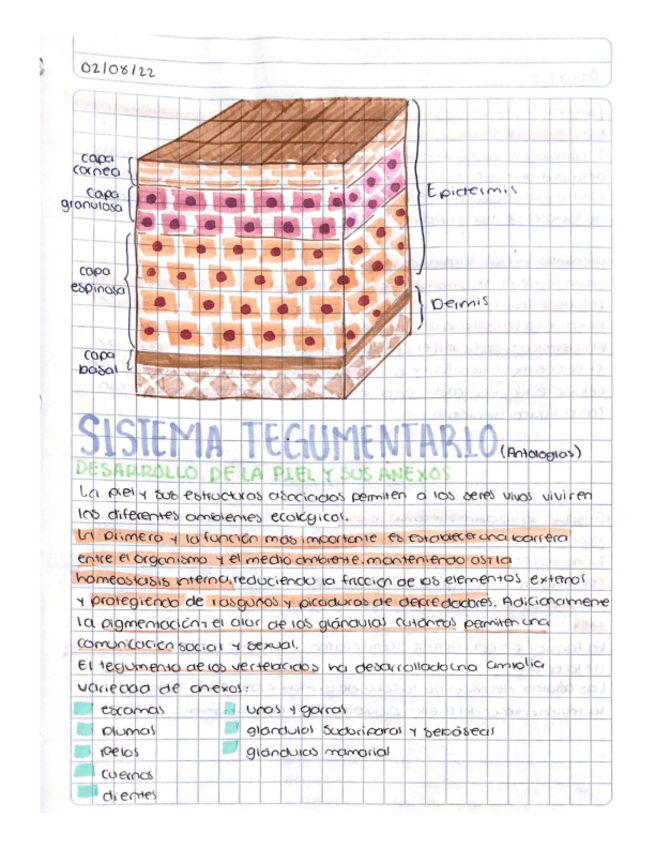 02/08/22
capa
cornea
capa
granulosa
Epidermis
capa
espinosa
Dermis
capa
basal
SISTEMA TEGUMENTARIO (Antologias)
DESARROLLO DE LA PIEL Y SUS ANEXOS
La piel y sus estructuras asociadas permiten a los seres vivos vivir en
los diferentes ambientes ecológicos.
La primera y la función más importante es establecer una barrera
entre el organismo y el medio ambiente, manteniendo asi la
homeostasis interna, reduciendo la fricción de los elementos externos
y protegiendo de rasguños y picaduras de depredadores. Adicionalmene
la pigmentación y el olor de las glándulas cutáneas permiten una
comunicación social y sexual.
El tegumento de los vertebrados ha desarrollado una amplia
variedad de anexos:
escamas
plumas
pelos
cuernos
dientes
uñas y garras
glándulas sudoriparas y sebáseas
glándulas mamarial